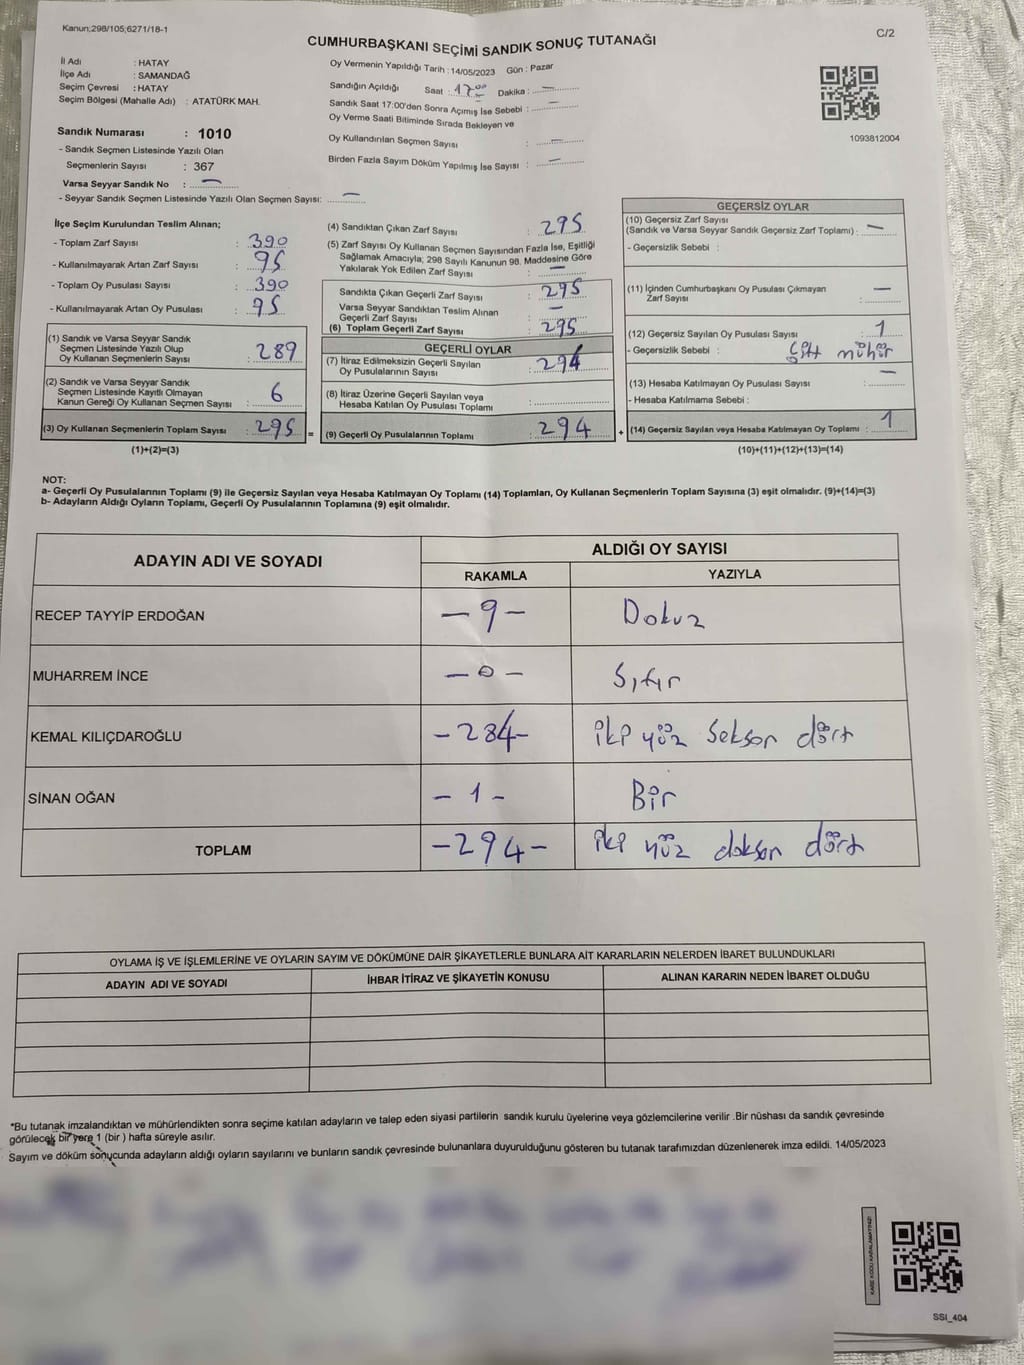 Kanun;298/105;6271/18-1
C/2
CUMHURBAŞKANI SEÇİMİ SANDIK SONUÇ TUTANAĞI
İl Adı : HATAY
İlçe Adı : SAMANDAĞ
Seçim Çevresi : HATAY
Seçim Bölgesi (Mahalle Adı) : ATATÜRK MAH.
Sandık Numarası : 1010
- Sandık Seçmen Listesinde Yazılı Olan
Seçmenlerin Sayısı : 367
Varsa Seyyar Sandık No : —
- Seyyar Sandık Seçmen Listesinde Yazılı Olan Seçmen Sayısı: —
Oy Vermenin Yapıldığı Tarih : 14/05/2023 Gün : Pazar
Sandığın Açıldığı Saat : 17:00 Dakika : —
Sandık Saat 17:00'den Sonra Açımış İse Sebebi : —
Oy Verme Saati Bitiminde Sırada Bekleyen ve
Oy Kullandırılan Seçmen Sayısı : —
Birden Fazla Sayım Döküm Yapılmış İse Sayısı : —
1093812004
İlçe Seçim Kurulundan Teslim Alınan;
- Toplam Zarf Sayısı : 390
- Kullanılmayarak Artan Zarf Sayısı : 95
- Toplam Oy Pusulası Sayısı : 390
- Kullanılmayarak Artan Oy Pusulası : 95
(1) Sandık ve Varsa Seyyar Sandık
Seçmen Listesinde Yazılı Olup
Oy Kullanan Seçmenlerin Sayısı : 289
(2) Sandık ve Varsa Seyyar Sandık
Seçmen Listesinde Kayıtlı Olmayan
Kanun Gereği Oy Kullanan Seçmen Sayısı : 6
(3) Oy Kullanan Seçmenlerin Toplam Sayısı : 295 =
(1)+(2)=(3)
(4) Sandıktan Çıkan Zarf Sayısı : 295
(5) Zarf Sayısı Oy Kullanan Seçmen Sayısından Fazla İse, Eşitliği
Sağlamak Amacıyla; 298 Sayılı Kanunun 98. Maddesine Göre
Yakılarak Yok Edilen Zarf Sayısı : —
Sandıkta Çıkan Geçerli Zarf Sayısı : 295
Varsa Seyyar Sandıktan Teslim Alınan
Geçerli Zarf Sayısı : —
(6) Toplam Geçerli Zarf Sayısı : 295
GEÇERLİ OYLAR
(7) İtiraz Edilmeksizin Geçerli Sayılan
Oy Pusulalarının Sayısı : 294
(8) İtiraz Üzerine Geçerli Sayılan veya
Hesaba Katılan Oy Pusulası Toplamı :
(9) Geçerli Oy Pusulalarının Toplamı : 294 +
GEÇERSİZ OYLAR
(10) Geçersiz Zarf Sayısı
(Sandık ve Varsa Seyyar Sandık Geçersiz Zarf Toplamı) : —
- Geçersizlik Sebebi :
(11) İçinden Cumhurbaşkanı Oy Pusulası Çıkmayan
Zarf Sayısı : —
(12) Geçersiz Sayılan Oy Pusulası Sayısı : 1
- Geçersizlik Sebebi : Çift mühür
(13) Hesaba Katılmayan Oy Pusulası Sayısı : —
- Hesaba Katılmama Sebebi :
(14) Geçersiz Sayılan veya Hesaba Katılmayan Oy Toplamı : 1
(10)+(11)+(12)+(13)=(14)
NOT:
a- Geçerli Oy Pusulalarının Toplamı (9) ile Geçersiz Sayılan veya Hesaba Katılmayan Oy Toplamı (14) Toplamları, Oy Kullanan Seçmenlerin Toplam Sayısına (3) eşit olmalıdır. (9)+(14)=(3)
b- Adayların Aldığı Oyların Toplamı, Geçerli Oy Pusulalarının Toplamına (9) eşit olmalıdır.
ADAYIN ADI VE SOYADI
ALDIĞI OY SAYISI
RAKAMLA YAZIYLA
RECEP TAYYİP ERDOĞAN -9- Dokuz
MUHARREM İNCE -0- Sıfır
KEMAL KILIÇDAROĞLU -284- iki yüz seksen dört
SİNAN OĞAN -1- Bir
TOPLAM -294- iki yüz doksan dört
OYLAMA İŞ VE İŞLEMLERİNE VE OYLARIN SAYIM VE DÖKÜMÜNE DAİR ŞİKAYETLERLE BUNLARA AİT KARARLARIN NELERDEN İBARET BULUNDUKLARI
ADAYIN ADI VE SOYADI İHBAR İTİRAZ VE ŞİKAYETİN KONUSU ALINAN KARARIN NEDEN İBARET OLDUĞU
*Bu tutanak imzalandıktan ve mühürlendikten sonra seçime katılan adayların ve talep eden siyasi partilerin sandık kurulu üyelerine veya gözlemcilerine verilir .Bir nüshası da sandık çevresinde
görülecek bir yere 1 (bir ) hafta süreyle asılır.
Sayım ve döküm sonucunda adayların aldığı oyların sayılarını ve bunların sandık çevresinde bulunanlara duyurulduğunu gösteren bu tutanak tarafımızdan düzenlenerek imza edildi. 14/05/2023
KARE KODU KARALAMAYINIZ!
SSI_404